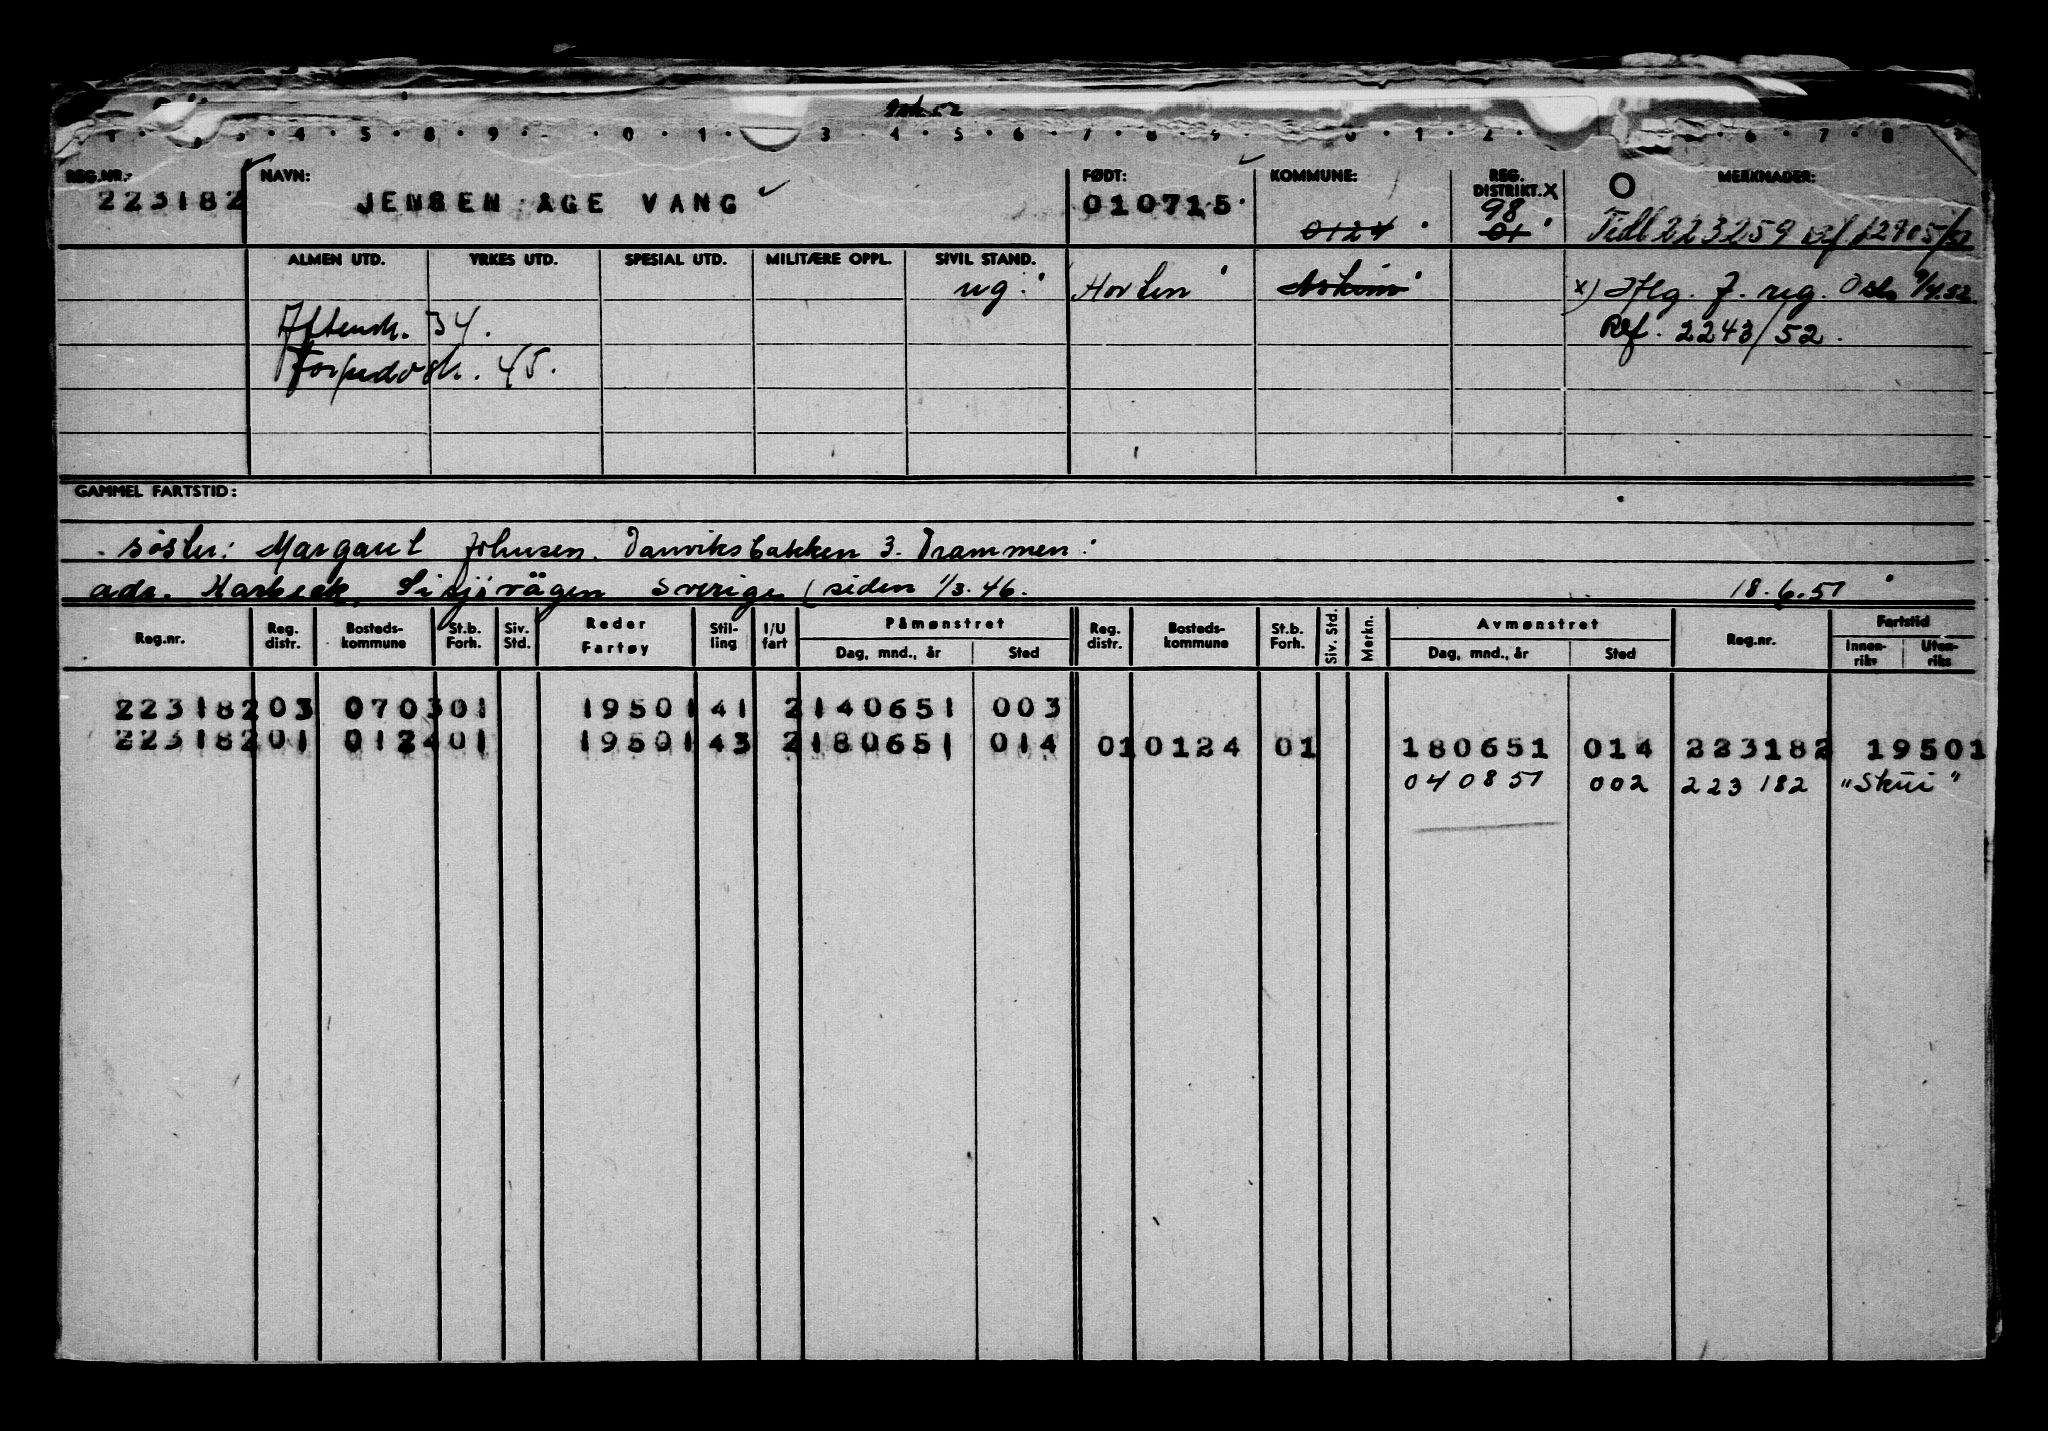 REG.NR.: NAVN: FØDT: KOMMUNE: REG. DISTRIKT. X MERKNADER:
223182 JENSEN AGE VANG 010715 0124 98 01 Tidl 223259 ref 12905/51
ALMEN UTD. YRKES UTD. SPESIAL UTD. MILITÆRE OPPL. SIVIL STAND.
ug. Horten Askim x) Oslo
Aftensk. 34. Ref. 2243/52.
Torpedosk. 45.
GAMMEL FARTSTID:
søster: Margaret Johnsen. Danviksbakken 3. Drammen.
adr. Sverige (siden 1/3.46. 18.6.51
Reg.nr. Reg. distr. Bosteds-kommune St.b. Forh. Siv. Std. Reder Fartøy Stil-ling I/U fart Påmønstret Dag, mnd., år Sted Reg. distr. Bosteds-kommune St.b. Forh. Siv. Std. Merkn. Avmønstret Dag, mnd., år Sted Reg.nr. Fartstid Innen-riks Uten-riks
223182 03 0703 01 19501 41 2 140651 003
223182 01 0124 01 19501 43 2 180651 014 01 0124 01 180651 014 223182 19501
040851 002 223182 "Skui"